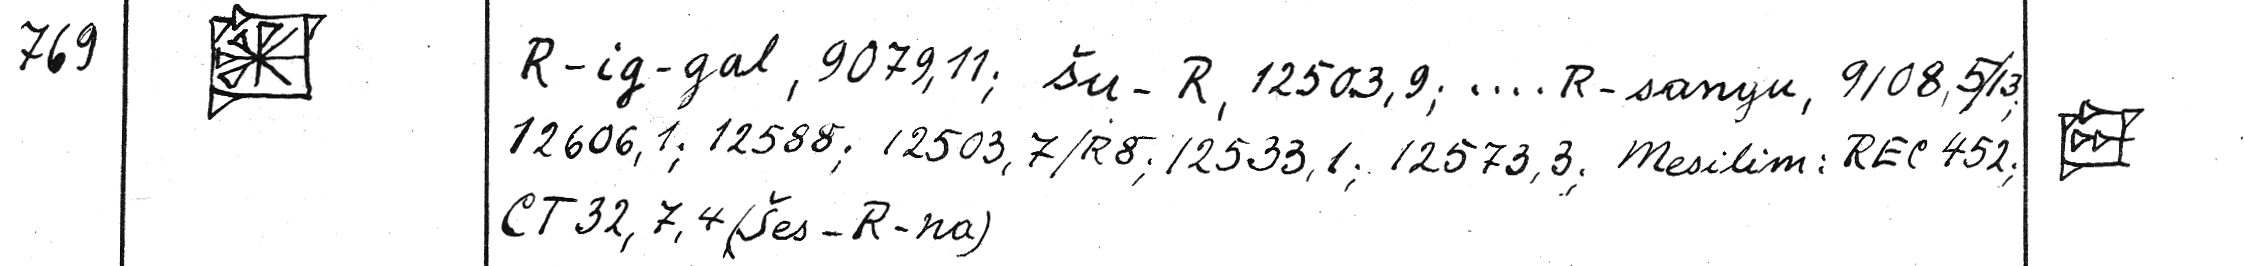 769 R-ig-gal, 9079,11; šu-R, 12503,9; ....R-sangu, 9108,5/13;
12606,1; 12588; 12503,7/R8; 12533,1; 12573,3; Mesilim: REC 452;
CT 32, 7, 4 (šes-R-na)